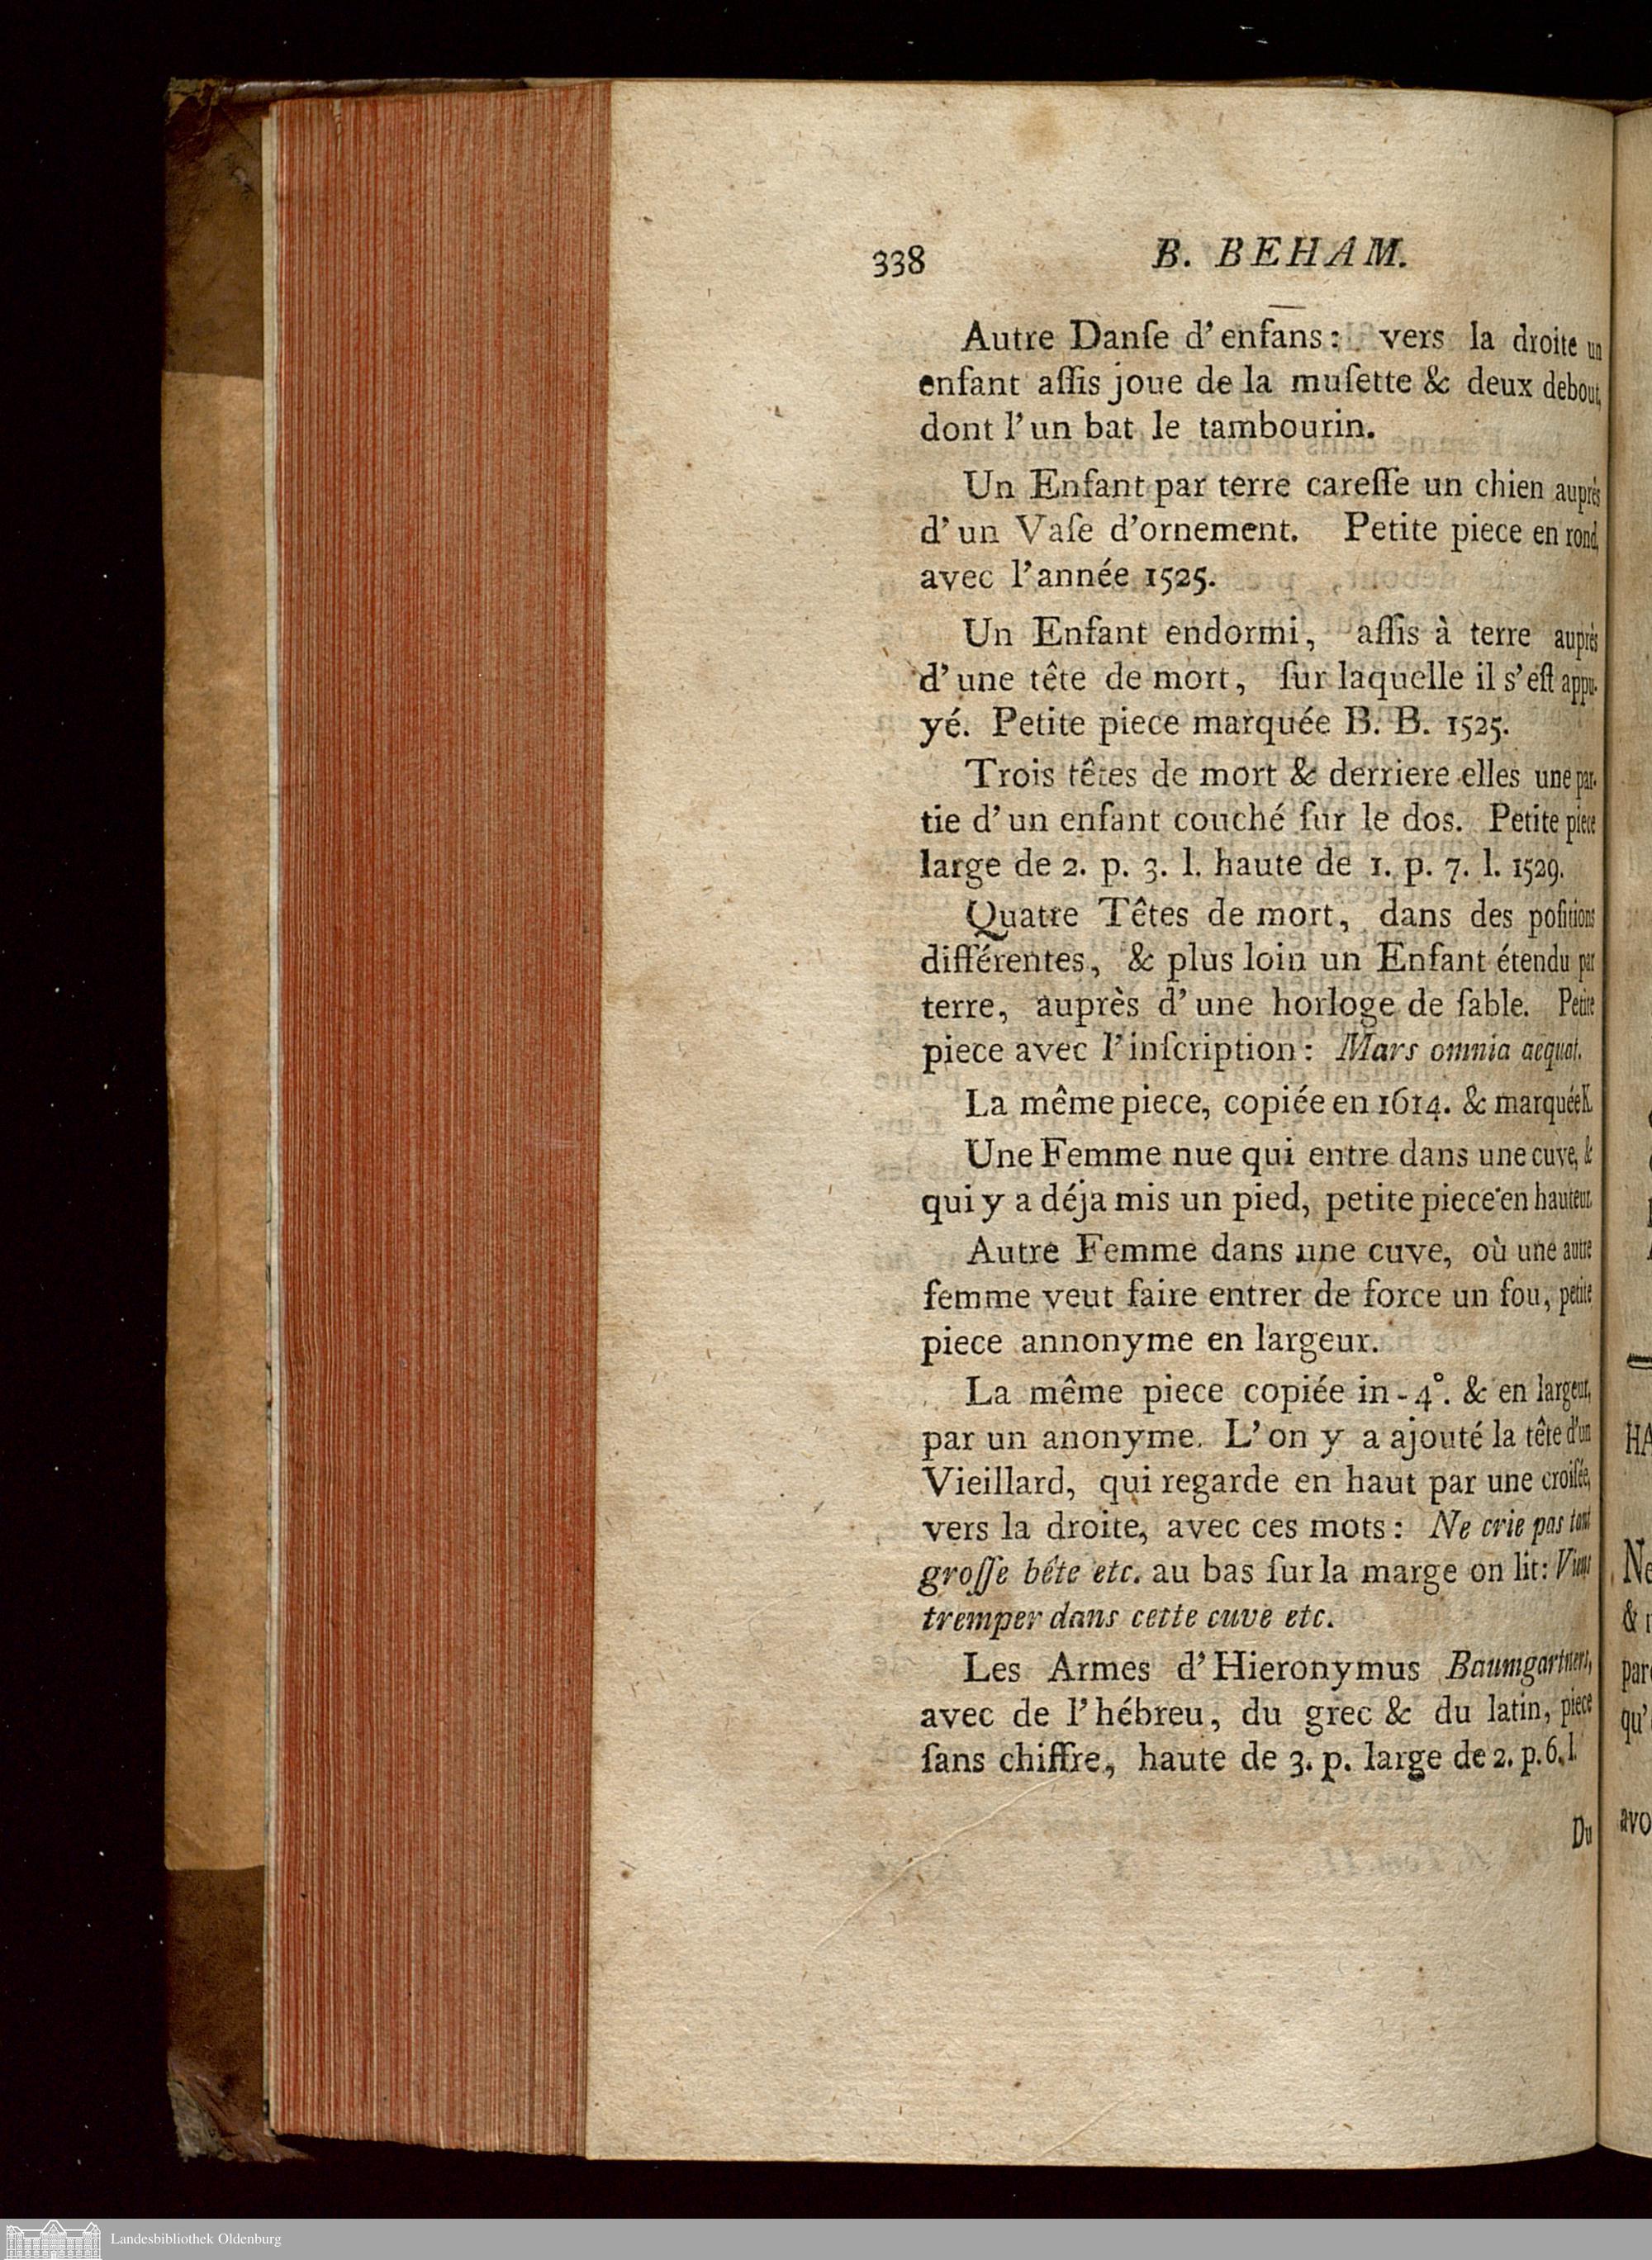 338 B. BEHAM.
Autre Danſe d'enfans: vers la droite un
enfant aſſis joue de la muſette & deux debout,
dont l'un bat le tambourin.
Un Enfant par terre careſſe un chien auprès
d'un Vaſe d'ornement. Petite piece en rond,
avec l'année 1525.
Un Enfant endormi, aſſis à terre auprès
d'une tête de mort, ſur laquelle il s'eſt appu-
yé. Petite piece marquée B. B. 1525.
Trois têtes de mort & derriere elles une par-
tie d'un enfant couché ſur le dos. Petite piece
large de 2. p. 3. l. haute de 1. p. 7. l. 1529.
Quatre Têtes de mort, dans des poſitions
différentes, & plus loin un Enfant étendu par
terre, auprès d'une horloge de ſable. Petite
piece avec l'inſcription: Mars omnia aequat.
La même piece, copiée en 1614. & marquée K.
Une Femme nue qui entre dans une cuve, &
qui y a déja mis un pied, petite piece en hauteur.
Autre Femme dans une cuve, où une autre
femme veut faire entrer de force un fou, petite
piece annonyme en largeur.
La même piece copiée in-4°. & en largeur,
par un anonyme. L'on y a ajouté la tête d'un
Vieillard, qui regarde en haut par une croiſée,
vers la droite, avec ces mots: Ne crie pas tant
groſſe bête etc. au bas ſur la marge on lit: Viens
tremper dans cette cuve etc.
Les Armes d'Hieronymus Baumgartners,
avec de l'hébreu, du grec & du latin, piece
ſans chiffre, haute de 3. p. large de 2. p. 6. l.
Du
HA
Ne
&
par
qu'
avo
Landesbibliothek Oldenburg